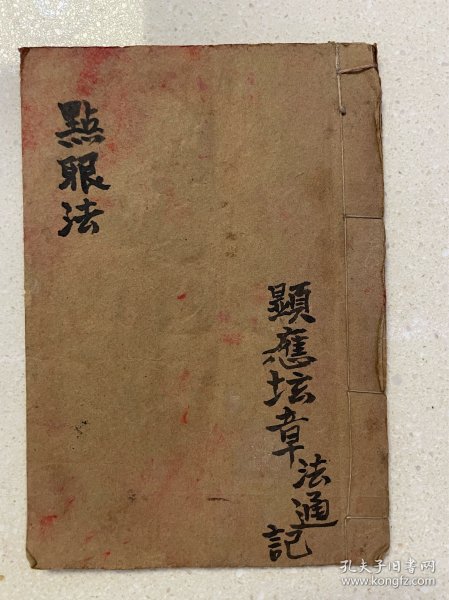 顯應坛章法通記
點眼法
孔夫子旧书网
www.kongfz.com